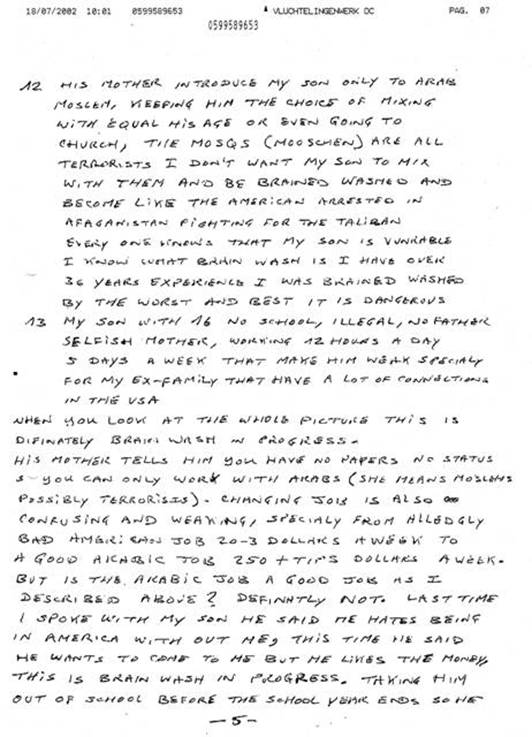 18/07/2002 10:01 0599589653 VLUCHTELINGENWERK DC PAG. 07
0599589653
12 HIS MOTHER INTRODUCE MY SON ONLY TO ARAB
MOSLEM, KEEPING HIM THE CHOICE OF MIXING
WITH EQUAL HIS AGE OR EVEN GOING TO
CHURCH, THE MOSQS (MOOSCHEN) ARE ALL
TERRORISTS I DON'T WANT MY SON TO MIX
WITH THEM AND BE BRAINED WASHED AND
BECOME LIKE THE AMERICAN ARRESTED IN
AFAGANISTAN FIGHTING FOR THE TALIBAN
EVERY ONE KNOWS THAT MY SON IS VUNRABLE
I KNOW WHAT BRAIN WASH IS I HAVE OVER
36 YEARS EXPERIENCE I WAS BRAINED WASHED
BY THE WORST AND BEST IT IS DANGEROUS
13 MY SON WITH 16 NO SCHOOL, ILLEGAL, NO FATHER
SELFISH MOTHER, WORKING 12 HOURS A DAY
5 DAYS A WEEK THAT MAKE HIM WEAK SPECIALY
FOR MY EX-FAMILY THAT HAVE A LOT OF CONNECTIONS
IN THE USA
WHEN YOU LOOK AT THE WHOLE PICTURE THIS IS
DIFINATELY BRAIN WASH IN PROGRESS.
HIS MOTHER TELLS HIM YOU HAVE NO PAPERS NO STATUS
S YOU CAN ONLY WORK WITH ARABS (SHE MEANS MOSLEMS
POSSIBLY TERRORISIS). CHANGING JOB IS ALSO
CONFUSING AND WEAKING, SPECIALY FROM ALLEDGLY
BAD AMERICAN JOB 20-3 DOLLARS A WEEK TO
A GOOD ARABIC JOB 250 + TIPS DOLLARS A WEEK.
BUT IS THE ARABIC JOB A GOOD JOB AS I
DESCRIBED ABOVE? DEFINATLY NOT. LAST TIME
I SPOKE WITH MY SON HE SAID HE HATES BEING
IN AMERICA WITH OUT ME, THIS TIME HE SAID
HE WANTS TO COME TO ME BUT HE LIKES THE MONEY,
THIS IS BRAIN WASH IN PROGRESS. TAKING HIM
OUT OF SCHOOL BEFORE THE SCHOOL YEAR ENDS SO HE
-5-